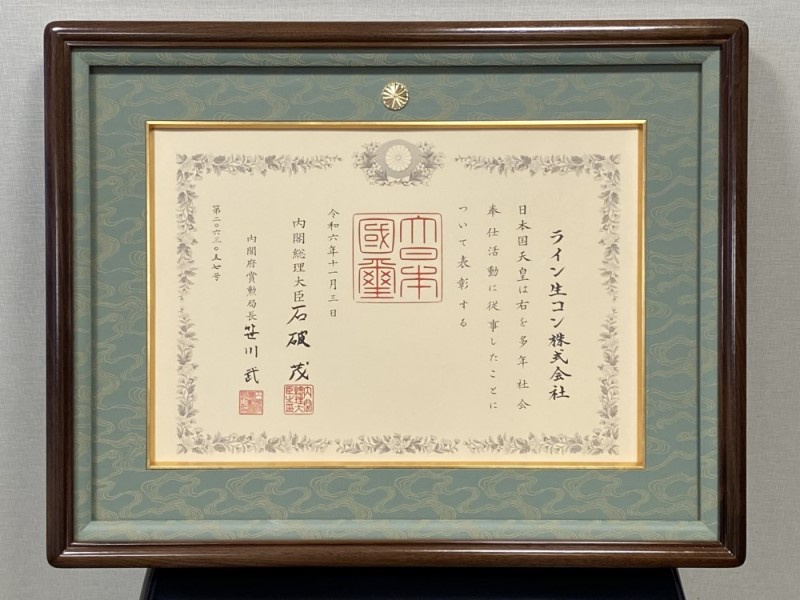 ライン生コン株式会社
日本国天皇は右を多年社会
奉仕活動に従事したことに
ついて表彰する
大日本
國璽
令和六年十一月三日
内閣総理大臣石破茂
内閣府賞勲局長笹川武
第二〇六三〇五七号